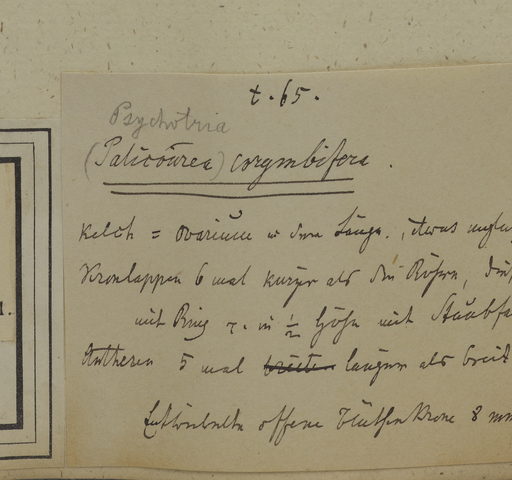 t. 65.
Psychotria
(Palicourea) corymbifera.
Kelch = Ovarium in der Länge, etwas
Kronlappen 6 mal kürzer als die Röhre,
mit Ring in ½ Höhe mit
Antheren 5 mal länger als breit
offene Blüthenkrone 8 mm
1.